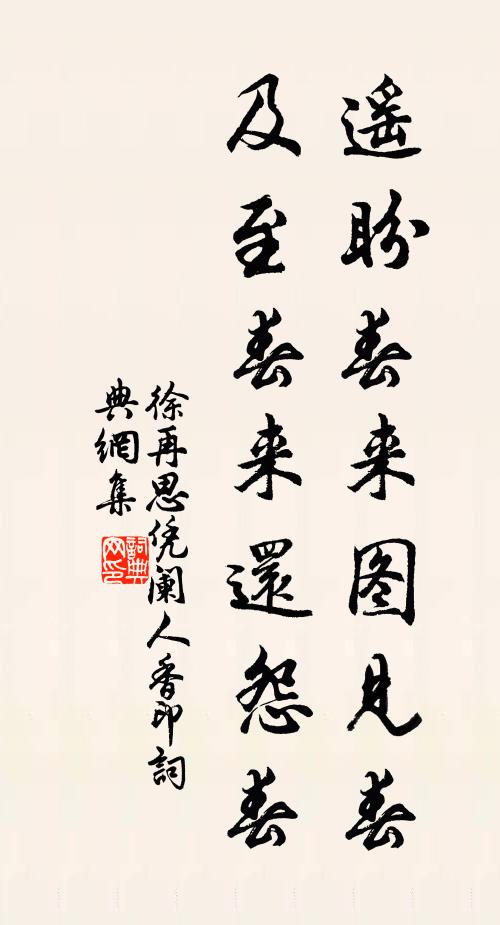 遥盼春来图见春
及至春来還怨春
徐再思凭阑人香印詞
典網集
詞典
网印